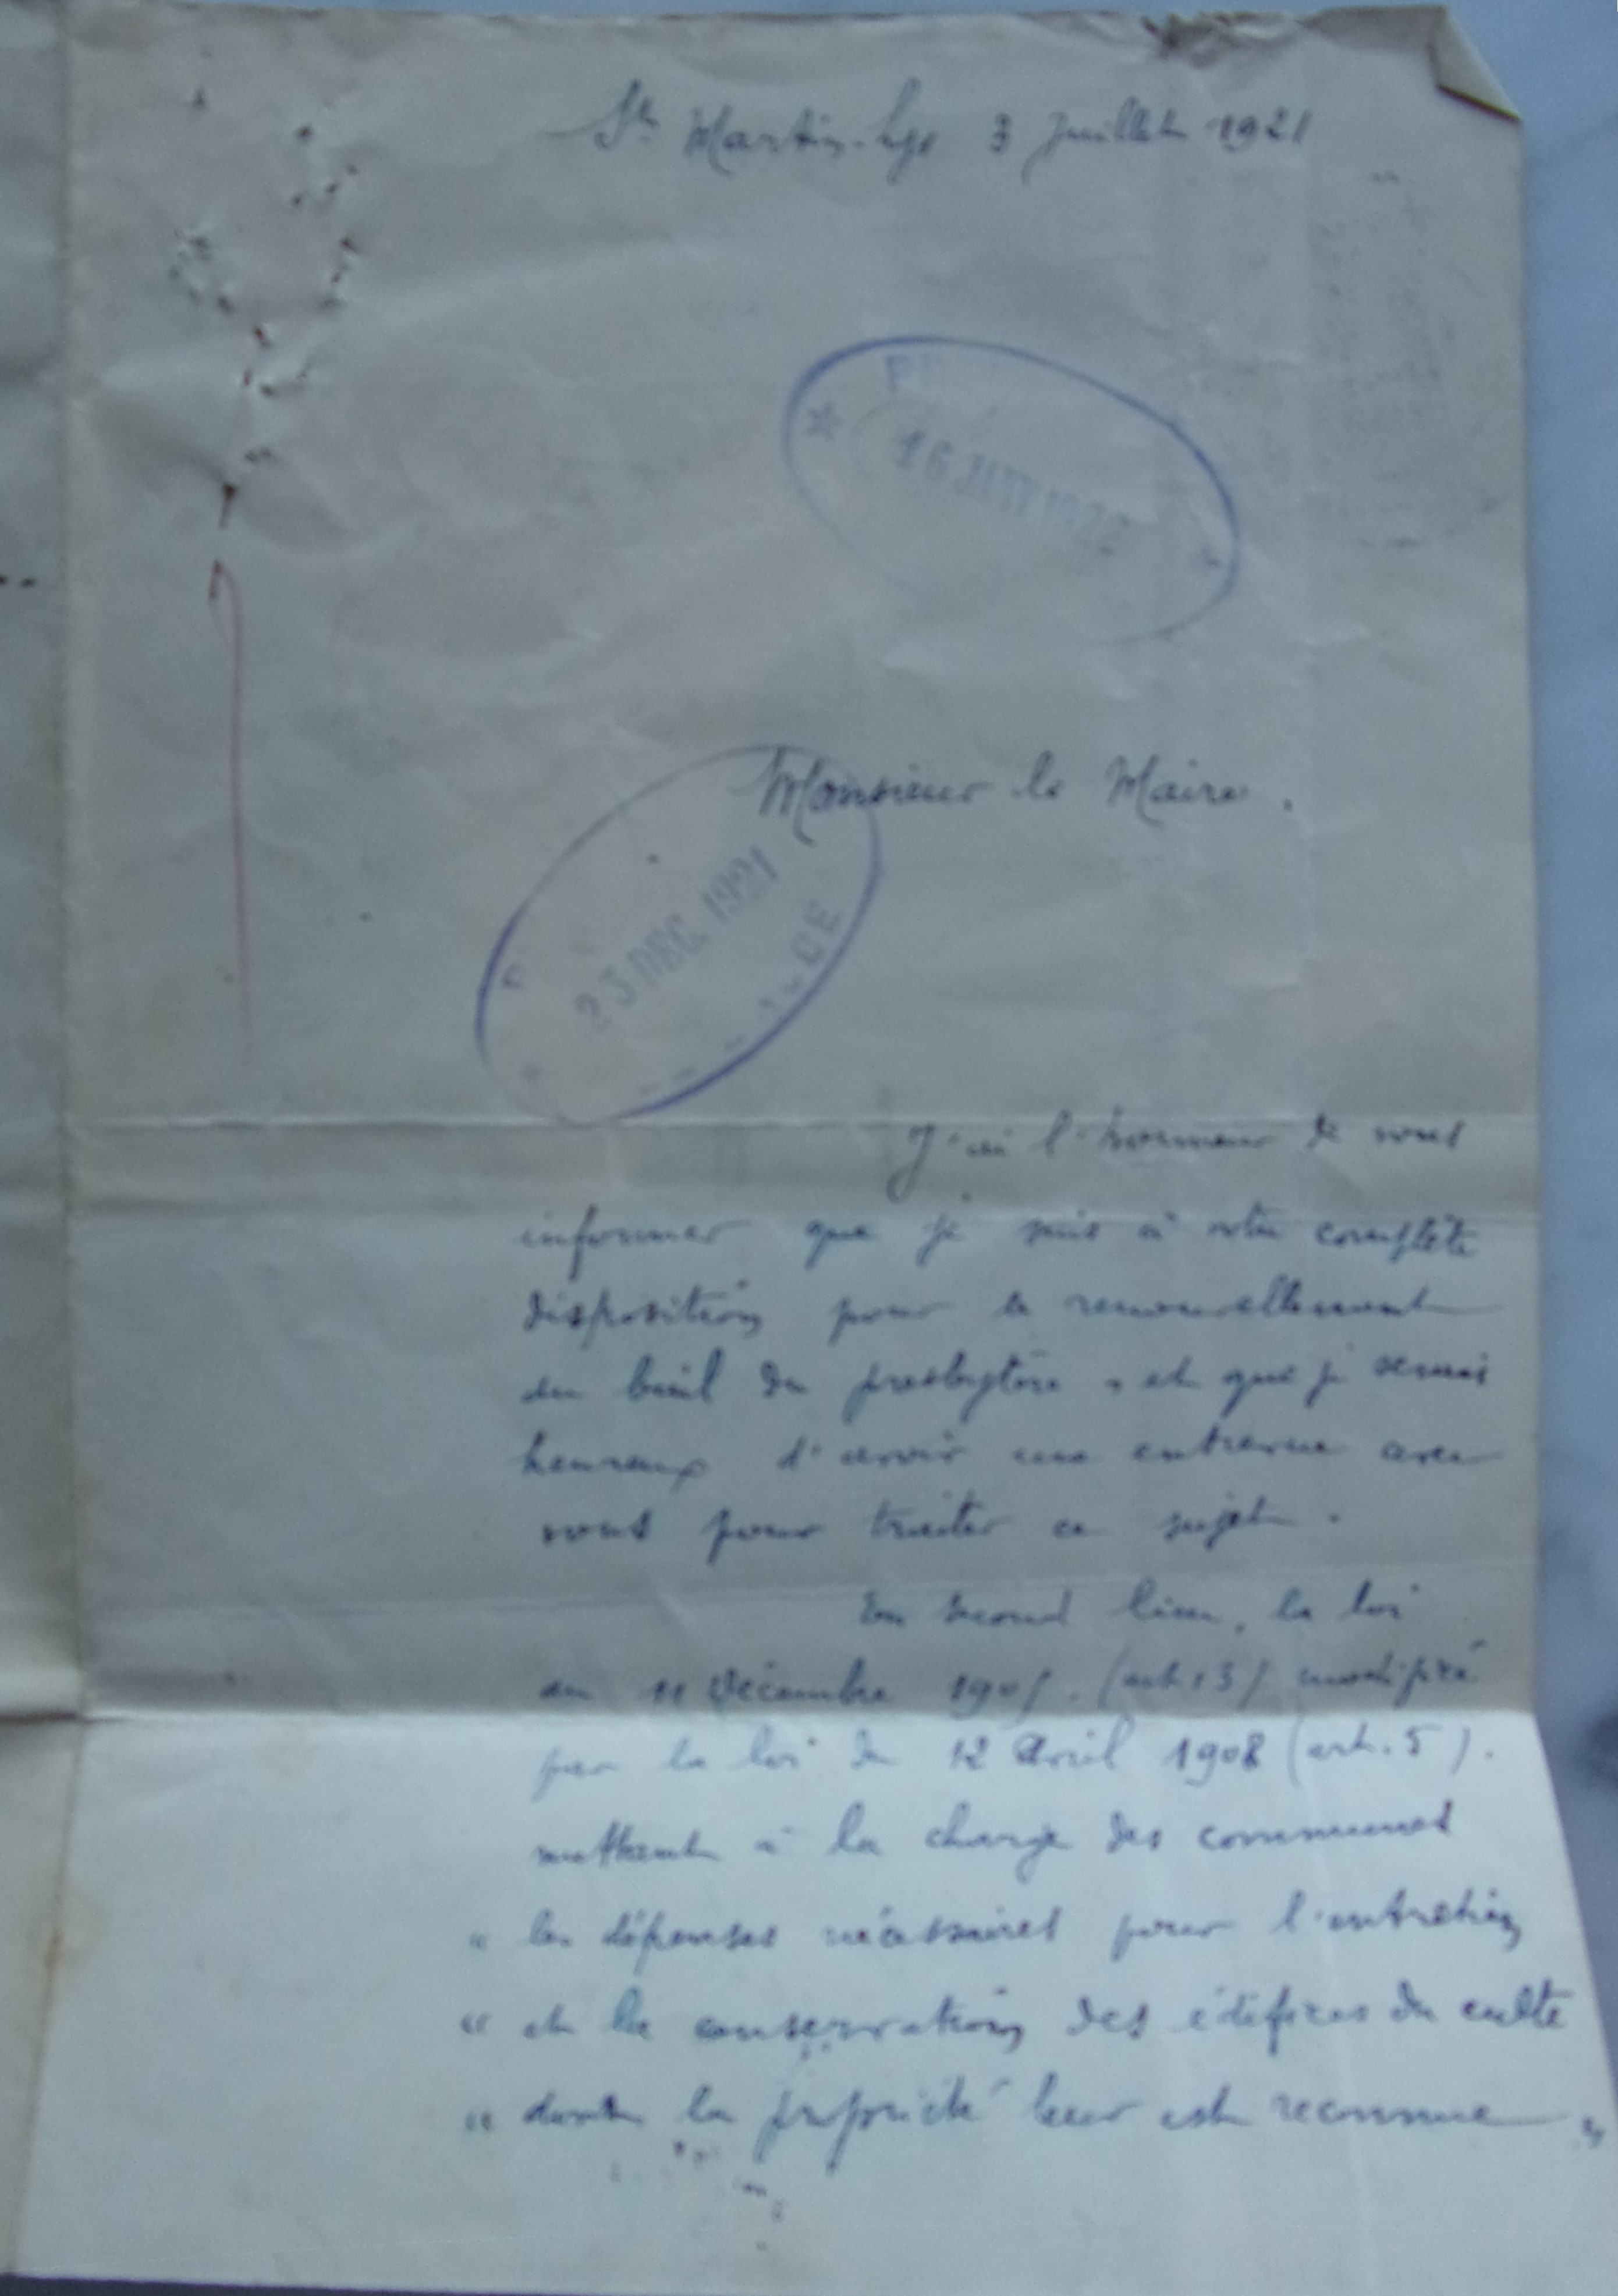 St Martin-Lys 3 Juillet 1921
Monsieur le Maire.
23 DEC. 1921
J'ai l'honneur de vous
informer que je suis à votre complète
disposition pour le renouvellement
du bail du presbytère, et que je serais
heureux d'avoir une entrevue avec
vous pour traiter ce sujet.
En second lieu, la loi
du 11 Décembre (art. 13) modifié
par la loi du 12 Avril 1908 (art. 5).
mettent à la charge des communes
" les dépenses nécessaires pour l'entretien
" et la conservation des édifices du culte
" dont la propriété leur est reconnue "